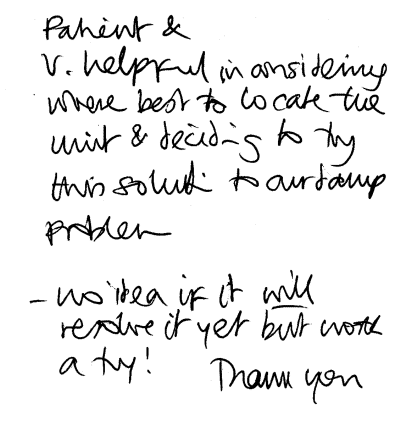 Patient &
V. helpful in considering
where best to locate the
unit & deciding to try
this solution to our damp
problem
- no idea if it will
resolve it yet but worth
a try!
Thank you